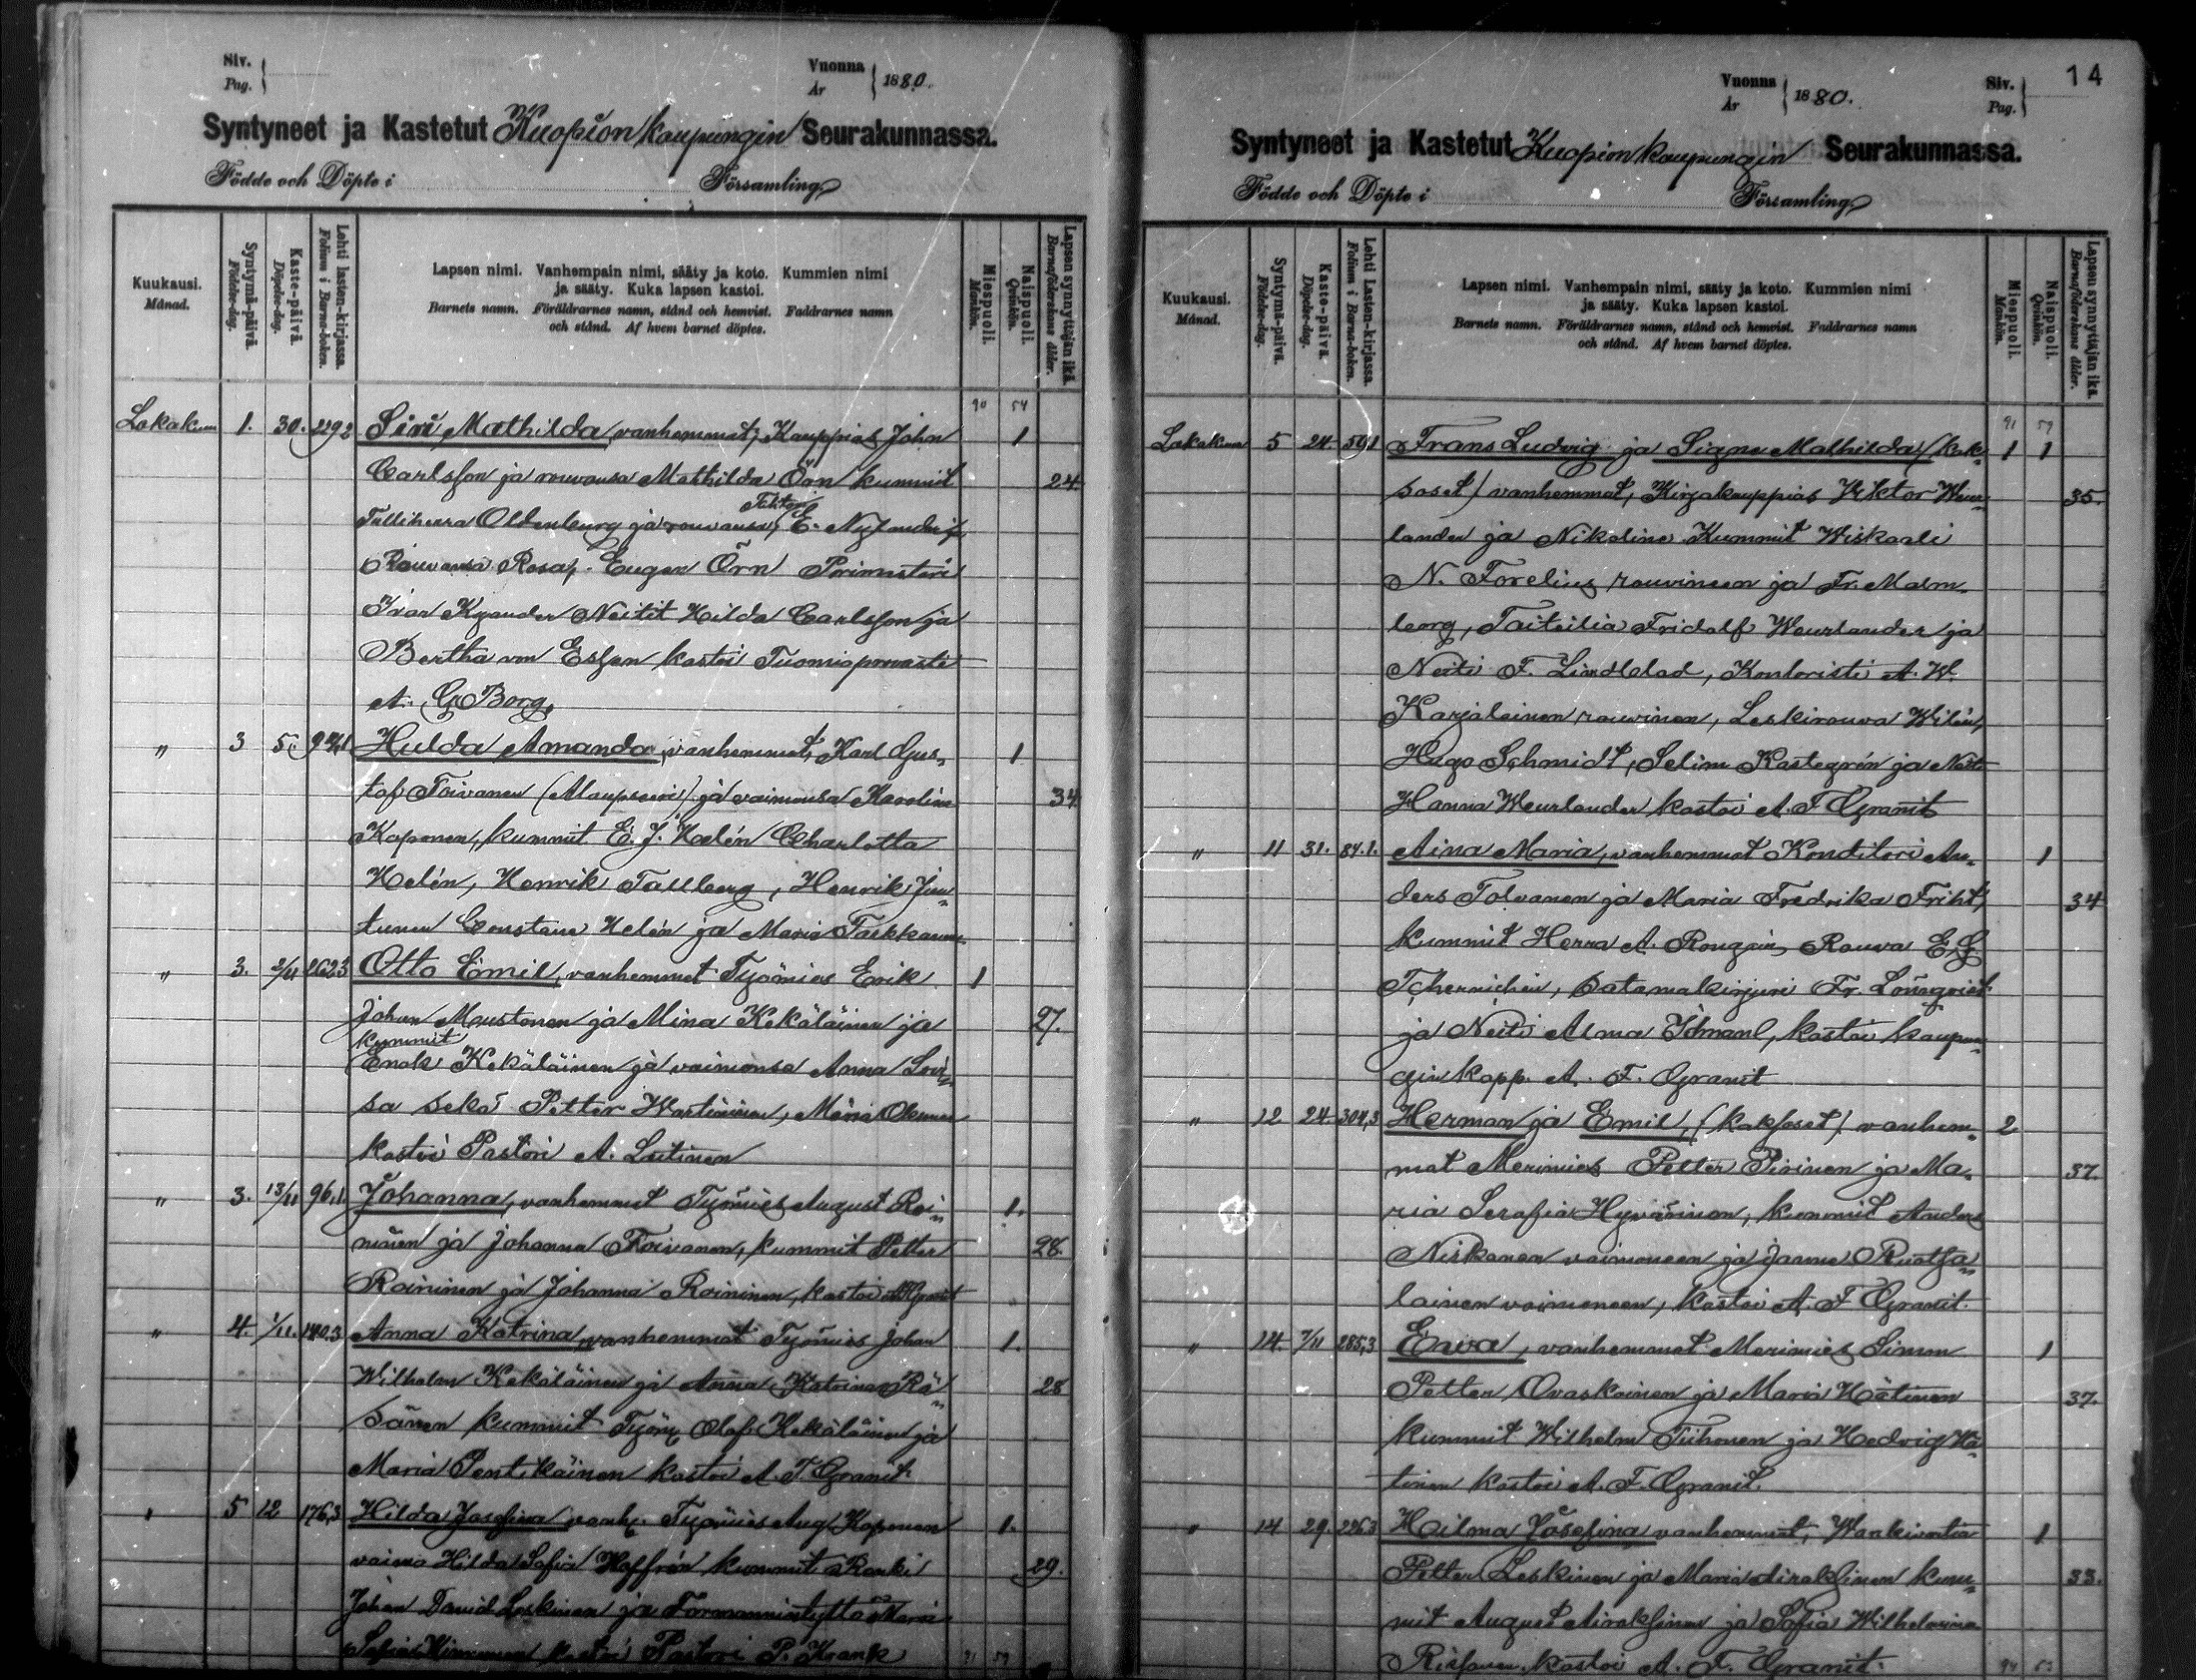 Siv.
Pag.
Vuonna
År
1880.
Syntyneet ja Kastetut Kuopion kaupungin Seurakunnassa.
Födde och Döpte i Församling
Kuukausi.
Månad.
Syntymä-päivä.
Födelse-dag.
Kaste-päivä.
Döpelse-dag.
Lehti lasten-kirjassa.
Folium i Barna-boken.
Lapsen nimi. Vanhempain nimi, sääty ja koto. Kummien nimi
ja sääty. Kuka lapsen kastoi.
Barnets namn. Föräldrarnes namn, stånd och hemvist. Faddrarnes namn
och stånd. Af hvem barnet döptes.
Miespuoli.
Mankön.
Naispuoli.
Qvinkön.
Lapsen synnyttäjän ikä.
Barnaföderskans ålder.
90 54
Lokakuu 1. 30. 2292 Siri Mathilda, vanhemmat, Kauppias John 1
Carlsson ja rouvansa Mathilda Örn kummit 24
Tulliherra Oldenburg ja rouvansa, E. Nylander ja
Rouvansa Rosa, Eugen Örn
Ivar Kyander Neitit Hilda Carlsson ja
Bertha von Essen kastoi Tuomioprovasti
A. G. Borg.
" 3 5. Hulda Amanda, vanhemmat, Karl Gus-
1
taf Toivanen ja vaimonsa Karolina 34
Koponen, kummit E. J. Helén Charlotta
Helén, Henrik Tallberg, Henrik Jun-
tunen Constans Helén ja Maria
" 3. 2/11 Otto Emil, vanhemmat Työmies Erik 1
Johan Mustonen ja Mina Kekäläinen ja 27.
kummit
Enok Kekäläinen ja vaimonsa Anna Lovi-
sa sekä Petter Wartiainen, Maria
kastoi Pastori A. Lutinen
" 3. 13/11 96,1. Johanna, vanhemmat Työmies August Roi- 1.
ninen ja Johanna Toivanen, kummit Petter 28.
Roininen ja Johanna Roininen, kastoi
" 4. 1/11. 140,3 Anna Katrina, vanhemmat Työmies Johan 1.
Wilhelm Kekäläinen ja Anna Katrina Rä- 28
sänen kummit Työm. Olof Kekäläinen ja
Maria Pentikäinen kastoi A. F. Granit.
" 5 12 176,3 Hilda Josefina vanh. Työmies Aug. Koponen 1.
vaimo Hilda Sofia Hoffrén kummit Renki 29.
Johan David Leskinen ja Formannintyttö Maria
Sofia kastoi Pastori P. Krank
14
Vuonna
År
1880.
Siv.
Pag.
Syntyneet ja Kastetut Kuopion kaupungin Seurakunnassa.
Födde och Döpte i Församling
Kuukausi.
Månad.
Syntymä-päivä.
Födelse-dag.
Kaste-päivä.
Döpelse-dag.
Lehti Lasten-kirjassa.
Folium i Barna-boken.
Lapsen nimi. Vanhempain nimi, sääty ja koto. Kummien nimi
ja sääty. Kuka lapsen kastoi.
Barnets namn. Föräldrarnes namn, stånd och hemvist. Faddrarnes namn
och stånd. Af hvem barnet döptes.
Miespuoli.
Mankön.
Naispuoli.
Qvinkön.
Lapsen synnyttäjän ikä.
Barnaföderskans ålder.
Lokakuu 5 24. Frans Ludvig ja Signe Mathilda (kak- 1 1
soset) vanhemmat, Kirjakauppias Viktor Weur- 35.
lander ja Nikoline Kummit Wiskaali
N. Forelius rouvineen ja Fr. Malm-
berg, Taiteilia Fridolf Weurlander ja
Neiti F. Lindblad, Kontoristi A. W.
Karjalainen rouvinen, Leskirouva Wilén,
Hugo Schmidt, Selim Kastegrén ja Neiti
Hanna Weurlander kastoi A. F. Granit
" 11 31. 84.1. Aina Maria, vanhemmat Konditori An- 1
ders Tolvanen ja Maria Fredrika Friht, 34
kummit Herra A. Rougain Rouva E. G.
Tchernichin, Satamakirjuri Fr. Lönnqvist
ja Neiti Alma Idman, kastoi kaupun-
gin kapp. A. F. Granit
" 12 24. 304,3 Herman ja Emil, (kaksoset) vanhem- 2
mat Merimies Petter Piirinen ja Ma- 37.
ria Serafia Hyvärinen, kummit Anders
Niskanen vaimoneen ja Janne Ruotsa-
lainen vaimoneen, kastoi A. F. Granit.
" 14. 7/11 285,3 Eeva, vanhemmat Merimies Simon 1
Petter Ovaskainen ja Maria Hätinen 37.
kummit Wilhelm Tiihonen ja Hedvig Hä-
tinen kastoi A. F. Granit.
" 14 29. Hilma Josefina vanhemmat, Wankivartia 1
Petter Leskinen ja Maria Airaksinen kum- 33.
mit August Airaksinen ja Sofia Wilhelmina
Rissanen, kastoi A. F. Granit.